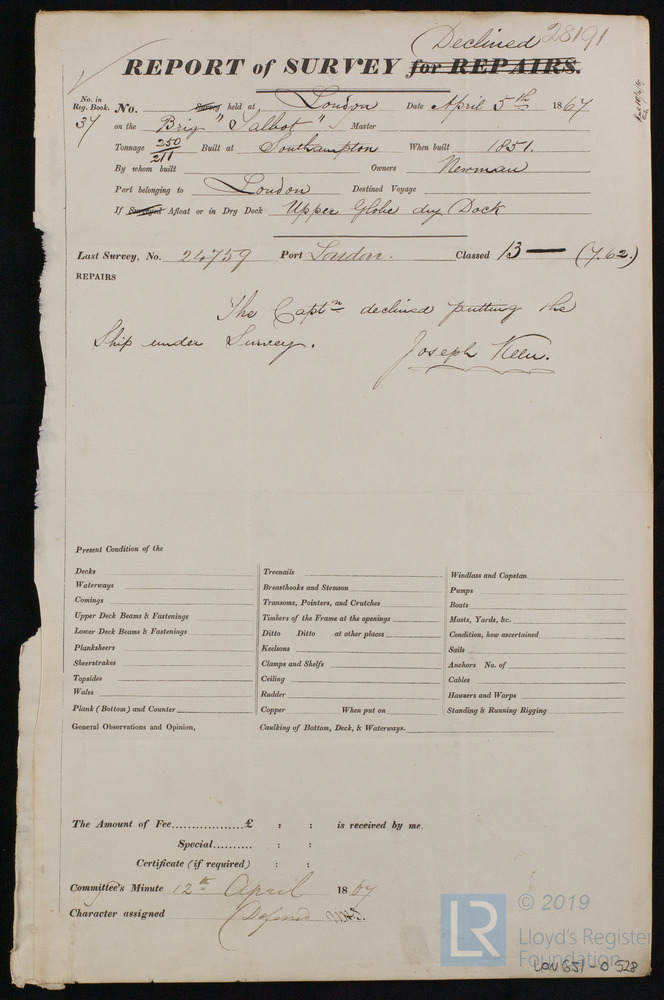 Declined 28191
REPORT of SURVEY for REPAIRS.
No. in
Reg. Book.
37
No. Survey held at, London Date April 5th 1867
on the Brig "Talbot" Master
Tonnage 250 / 211 Built at Southampton When built 1851.
By whom built Owners Newman
Port belonging to London Destined Voyage
If Surveyed Afloat or in Dry Dock Upper Globe dry Dock
Last Survey, No. 24759 Port London. Classed 13 — (7.62.)
REPAIRS
The Captn declined putting the
Ship under Survey. Joseph Keen.
Present Condition of the
Decks
Waterways
Comings
Upper Deck Beams & Fastenings
Lower Deck Beams & Fastenings
Planksheers
Sheerstrakes
Topsides
Wales
Plank (Bottom) and Counter
General Observations and Opinion,
Treenails
Breasthooks and Stemson
Transoms, Pointers, and Crutches
Timbers of the Frame at the openings
Ditto Ditto at other places
Keelsons
Clamps and Shelfs
Ceiling
Rudder
Copper When put on
Caulking of Bottom, Deck, & Waterways.
Windlass and Capstan
Pumps
Boats
Masts, Yards, &c.
Condition, how ascertained
Sails
Anchors No. of
Cables
Hawsers and Warps
Standing & Running Rigging
The Amount of Fee..................£ : : is received by me.
Special.......... : :
Certificate (if required) : :
Committee's Minute 12th April 1867
Character assigned Deferred
LR
© 2019
Lloyd's Register
Foundation
LON 651-0528